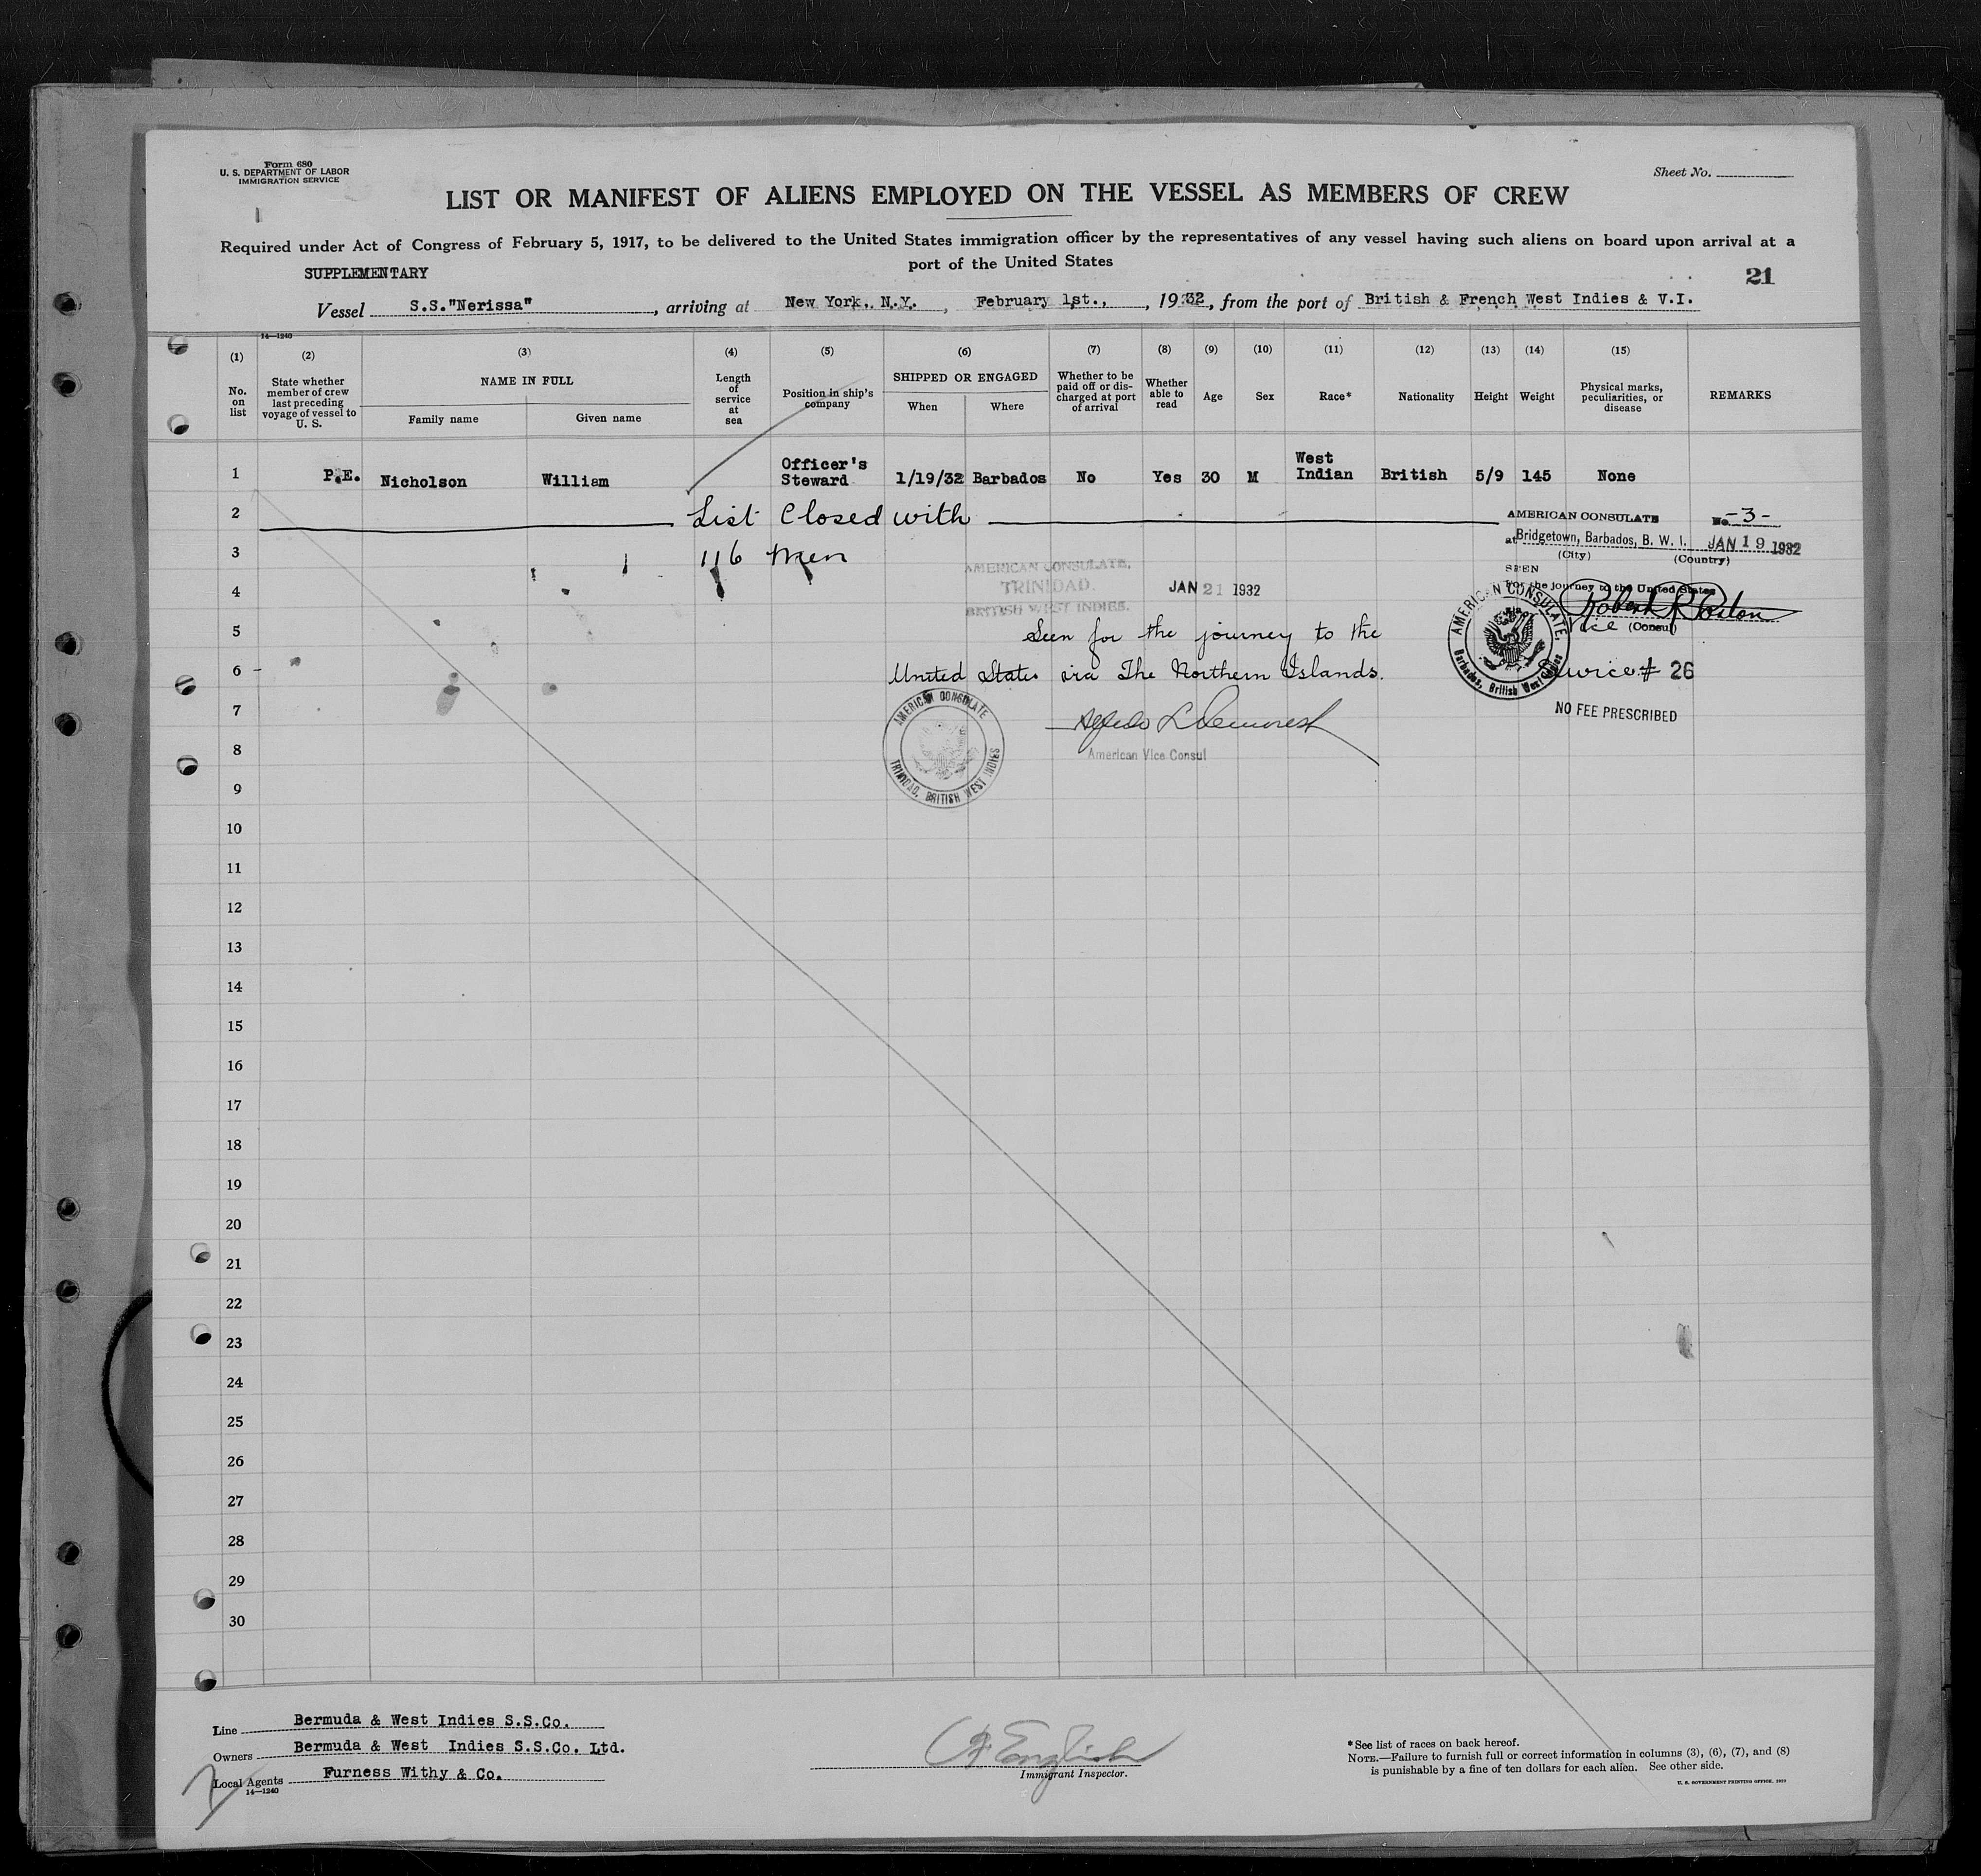 Form 680
U. S. DEPARTMENT OF LABOR
IMMIGRATION SERVICE
Sheet No.
LIST OR MANIFEST OF ALIENS EMPLOYED ON THE VESSEL AS MEMBERS OF CREW
Required under Act of Congress of February 5, 1917, to be delivered to the United States immigration officer by the representatives of any vessel having such aliens on board upon arrival at a
port of the United States
SUPPLEMENTARY
21
Vessel S.S."Nerissa", arriving at New York, N.Y., February 1st., 1932, from the port of British & French West Indies & V.I.
14—1240
(1) (2) (3) (4) (5) (6) (7) (8) (9) (10) (11) (12) (13) (14) (15)
No. on list
State whether member of crew last preceding voyage of vessel to U. S.
NAME IN FULL
Family name
Given name
Length of service at sea
Position in ship's company
SHIPPED OR ENGAGED
When
Where
Whether to be paid off or discharged at port of arrival
Whether able to read
Age
Sex
Race*
Nationality
Height
Weight
Physical marks, peculiarities, or disease
REMARKS
1 P.E. Nicholson William Officer's Steward 1/19/32 Barbados No Yes 30 M West Indian British 5/9 145 None
2 List Closed with
3 116 Men
AMERICAN CONSULATE No. -3-
at Bridgetown, Barbados, B. W. I. JAN 19 1932
(City) (Country)
SEEN
For the journey to the United States
Vice (Consul)
AMERICAN CONSULATE, Barbados, British West Indies
Service # 26
NO FEE PRESCRIBED
AMERICAN CONSULATE,
TRINIDAD.
BRITISH WEST INDIES.
JAN 21 1932
Seen for the journey to the
United States via The Northern Islands.
American Vice Consul
AMERICAN CONSULATE
TRINIDAD, BRITISH WEST INDIES
4
5
6
7
8
9
10
11
12
13
14
15
16
17
18
19
20
21
22
23
24
25
26
27
28
29
30
Line Bermuda & West Indies S.S.Co.
Owners Bermuda & West Indies S.S.Co. Ltd.
Local Agents Furness Withy & Co.
14—1240
English
Immigrant Inspector.
*See list of races on back hereof.
NOTE.—Failure to furnish full or correct information in columns (3), (6), (7), and (8)
is punishable by a fine of ten dollars for each alien. See other side.